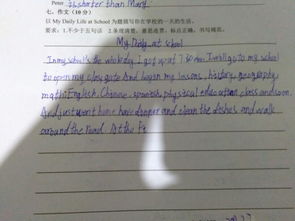 Peter is shorter than Mary.
七、作文（10分）
以 My Daily Life at School 为题描写你在学校的一天的生活。
要求：1.不少于五句话 2.条理清楚，意思连贯，标点正确，书写规范。
My Daily at school
In my school's the I get up at I will go to my school
to open my And began my lessons, history, geography
math, English, Chinese, spanish, physical education class and soon.
And just went home have dinner and clean the dishes and walk
around the road. At the